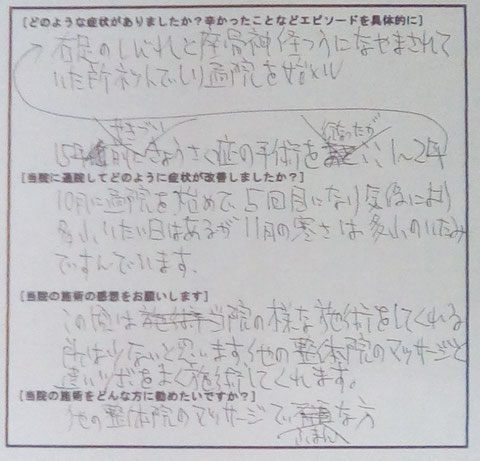 [どのような症状がありましたか？辛かったことなどエピソードを具体的に]
右足のしびれと座骨神経つうになやまされて
いた所ネットでしり通院を始メル
せきづい 行なったが
15年前にきょうさく症の手術を 1〜2年
[当院に通院してどのように症状が改善しましたか？]
10月に通院を始めて5回目になり気候により
多少いたい日はあるが11月の寒さは多少のいたみ
ですんでいます。
[当院の施術の感想をお願いします]
この辺は 当院の様な施術をしてくれる
所は少ないと思います他の整体院のマッサージと
違いツボをよく施術してくれます。
[当院の施術をどんな方に勧めたいですか？]
他の整体院のマッサージで な方
ふまん